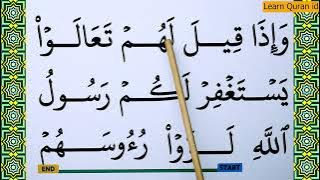 Learn Quran id
وَإِذَا قِيلَ لَهُمْ تَعَالَوْا۟
يَسْتَغْفِرْ لَكُمْ رَسُولُ
ٱللَّهِ لَوَّوْا۟ رُءُوسَهُمْ
END START